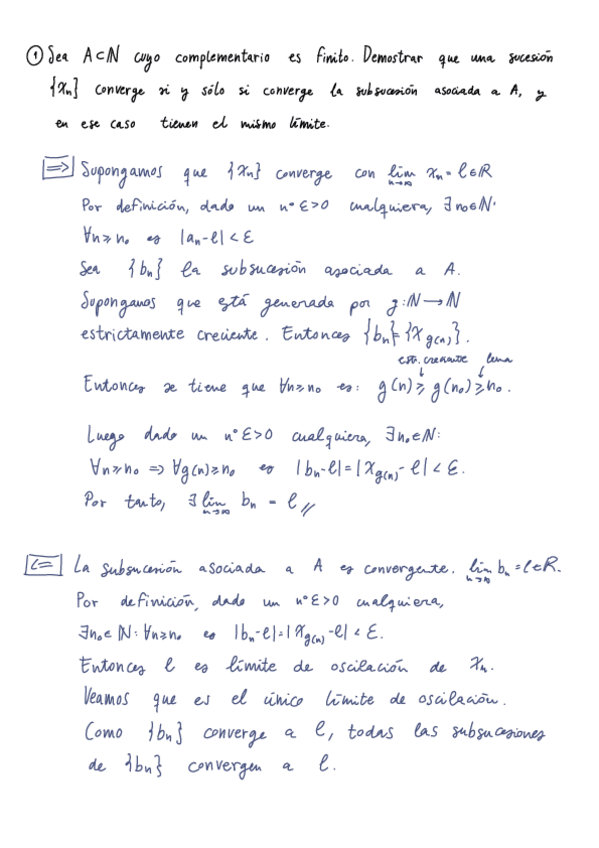 ① Sea A⊂ℕ cuyo complementario es finito. Demostrar que una sucesión
{xₙ} converge si y sólo si converge la subsucesión asociada a A, y
en ese caso tienen el mismo límite.
⇒ Supongamos que {xₙ} converge con lim xₙ = l∈ℝ
n→∞
Por definición, dado un nº ε>0 cualquiera, ∃n₀∈ℕ:
∀n≥n₀ es |aₙ-l|<ε
Sea {bₙ} la subsucesión asociada a A.
Supongamos que está generada por g:ℕ→ℕ
estrictamente creciente. Entonces {bₙ}={x_g(n)}.
estr. creciente lema
↓ ↓
Entonces se tiene que ∀n≥n₀ es: g(n)≥g(n₀)≥n₀.
Luego dado un nº ε>0 cualquiera, ∃n₀∈ℕ:
∀n≥n₀ => ∀g(n)≥n₀ es |bₙ-l|=|x_g(n)-l|<ε.
Por tanto, ∃ lim bₙ = l //
n→∞
⇐ La subsucesión asociada a A es convergente. lim bₙ=l∈ℝ.
n→∞
Por definición, dado un nº ε>0 cualquiera,
∃n₀∈ℕ: ∀n≥n₀ es |bₙ-l|=|x_g(n)-l|<ε.
Entonces l es límite de oscilación de xₙ.
Veamos que es el único límite de oscilación.
Como {bₙ} converge a l, todas las subsucesiones
de {bₙ} convergen a l.